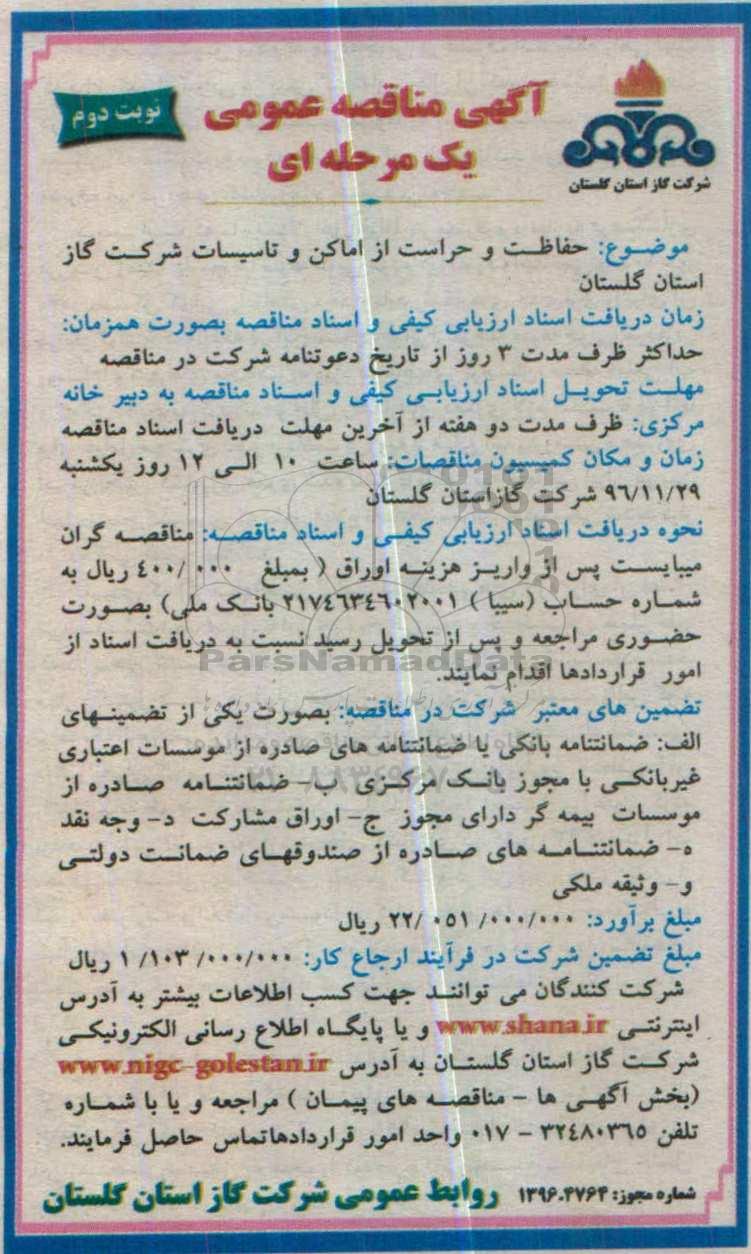 آگهی مناقصه عمومی
یک مرحله ای
نوبت دوم
شرکت گاز استان گلستان
موضوع: حفاظت و حراست از اماکن و تاسیسات شرکت گاز
استان گلستان
زمان دریافت اسناد ارزیابی کیفی و اسناد مناقصه بصورت همزمان:
حداکثر ظرف مدت ۳ روز از تاریخ دعوتنامه شرکت در مناقصه
مهلت تحویل اسناد ارزیابی کیفی و اسناد مناقصه به دبیر خانه
مرکزی: ظرف مدت دو هفته از آخرین مهلت دریافت اسناد مناقصه
زمان و مکان کمیسیون مناقصات: ساعت ۱۰ الی ۱۲ روز یکشنبه
۹۶/۱۱/۲۹ شرکت گازاستان گلستان
نحوه دریافت اسناد ارزیابی کیفی و اسناد مناقصه: مناقصه گران
میبایست پس از واریز هزینه اوراق ( بمبلغ ۴۰۰/۰۰۰ ریال به
شماره حساب (سیبا ) ۲۱۷٤٦۳٤٦۰۲۰۰۱ بانک ملی) بصورت
حضوری مراجعه و پس از تحویل رسید نسبت به دریافت اسناد از
امور قراردادها اقدام نمایند.
ParsNamadData
تضمین های معتبر شرکت در مناقصه: بصورت یکی از تضمینهای
الف: ضمانتنامه بانکی یا ضمانتنامه های صادره از موسسات اعتباری
غیربانکی با مجوز بانک مرکزی ب- ضمانتنامه صادره از
موسسات بیمه گر دارای مجوز ج- اوراق مشارکت د- وجه نقد
ه- ضمانتنامه های صادره از صندوقهای ضمانت دولتی
و- وثیقه ملکی
مبلغ برآورد: ۲۲/۰۵۱/۰۰۰/۰۰۰ ریال
مبلغ تضمین شرکت در فرآیند ارجاع کار: ۱/۱۰۳/۰۰۰/۰۰۰ ریال
شرکت کنندگان می توانند جهت کسب اطلاعات بیشتر به آدرس
اینترنتی www.shana.ir و یا پایگاه اطلاع رسانی الکترونیکی
شرکت گاز استان گلستان به آدرس www.nigc-golestan.ir
(بخش آگهی ها - مناقصه های پیمان ) مراجعه و یا با شماره
تلفن ۳۲٤۸۰۳٦٥ - ۰۱۷ واحد امور قراردادهاتماس حاصل فرمایند.
شماره مجوز: ۱۳۹۶.۴۷۶۴
روابط عمومی شرکت گاز استان گلستان